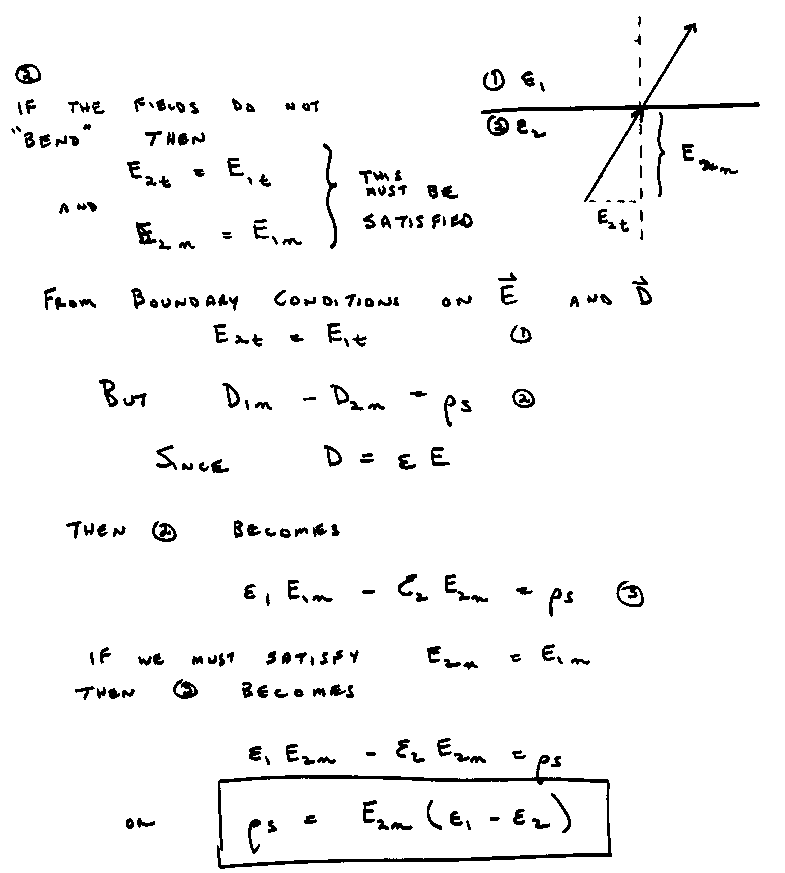 ②
IF THE FIELDS DO NOT
"BEND" THEN
E₂t = E₁t
AND
E₂n = E₁n
THIS
MUST BE
SATISFIED
① ε₁
② ε₂
E₂n
E₂t
FROM BOUNDARY CONDITIONS ON E⃗ AND D⃗
E₂t = E₁t ①
BUT D₁n - D₂n = ρs ②
SINCE D = ε E
THEN ② BECOMES
ε₁ E₁n - ε₂ E₂n = ρs ③
IF WE MUST SATISFY E₂n = E₁n
THEN ③ BECOMES
ε₁ E₂n - ε₂ E₂n = ρs
OR ρs = E₂n (ε₁ - ε₂)